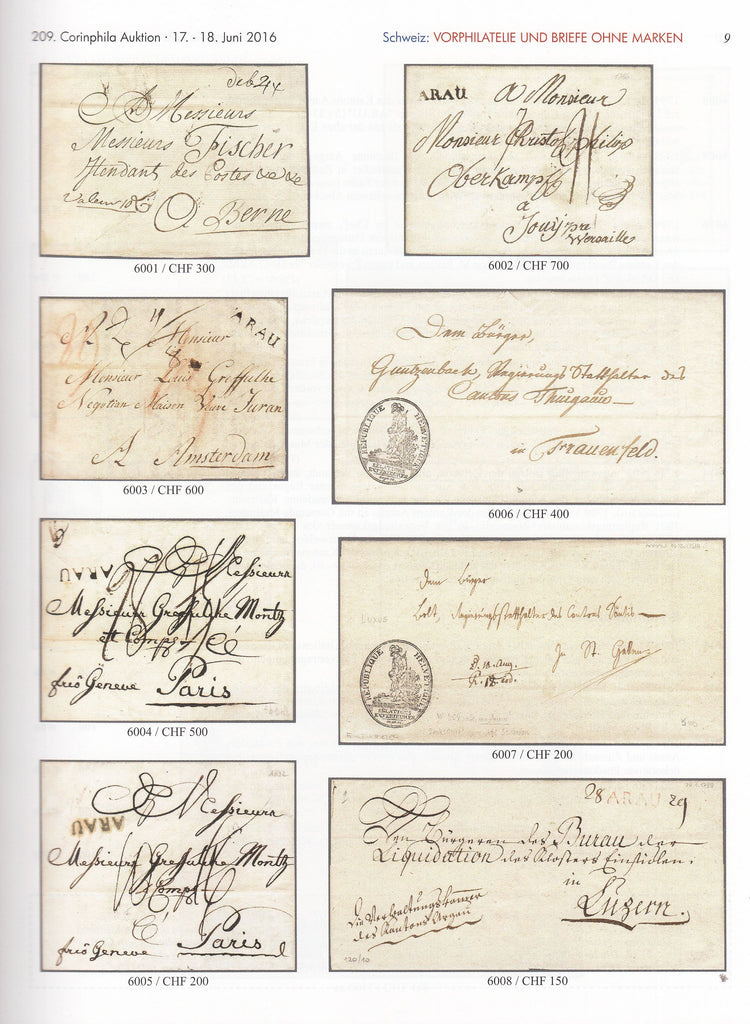 209. Corinphila Auktion · 17. - 18. Juni 2016
Schweiz: VORPHILATELIE UND BRIEFE OHNE MARKEN
9
deb 24
A Messieurs
Messieurs Fischer
des Postes
A Berne
6001 / CHF 300
ARAU
A Monsieur
Monsieur Christof Philip
Oberkampf
a
Jouij
Versaille
6002 / CHF 700
ARAU
A Monsieur
Monsieur Louis Greffulhe
Negotian Maison Veuve Juran
A Amsterdam
6003 / CHF 600
Dem Bürger,
Guntzenbach, Regierungs Statthalter des
Cantons Thurgaus
in Frauenfeld.
REPUBLIQUE HELVETIQUE
RELATIONS
EXTERIEURES
6006 / CHF 400
ARAU
A Messieurs
Messieurs Greffulhe Montz
et Comp
frco Geneve Paris
6004 / CHF 500
dem Bürger
Bolt, Regierungsstatthalter des Cantons Säntis
LUXUS
In St. Gallen
REPUBLIQUE HELVETIQUE
RELATIONS
EXTERIEURES
6007 / CHF 200
1802
A Messieurs
ARAU
Messieurs Greffulhe Montz
Comp
frco Geneve Paris
6005 / CHF 200
28 ARAU 29
Den Bürgeren des Burau der
Liquidation des Klosters Einsidlen.
in
Luzern.
Die Verwaltungskammer
des Kantons Argau
120/10
6008 / CHF 150